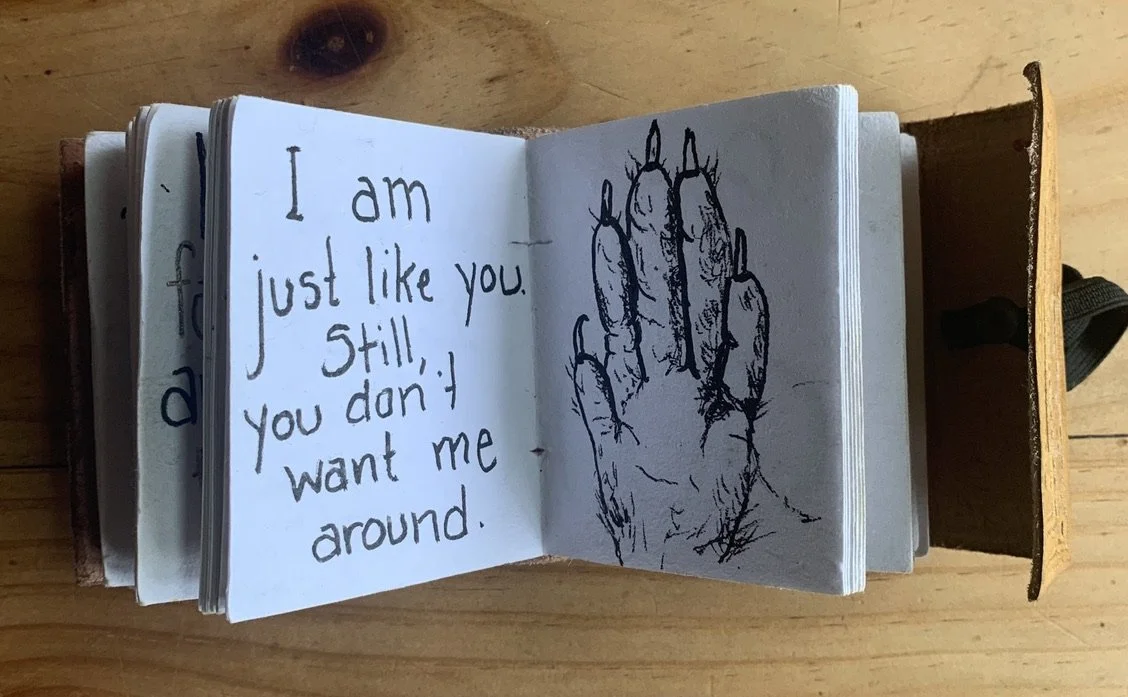 I am
just like you.
Still,
you don't
want me
around.